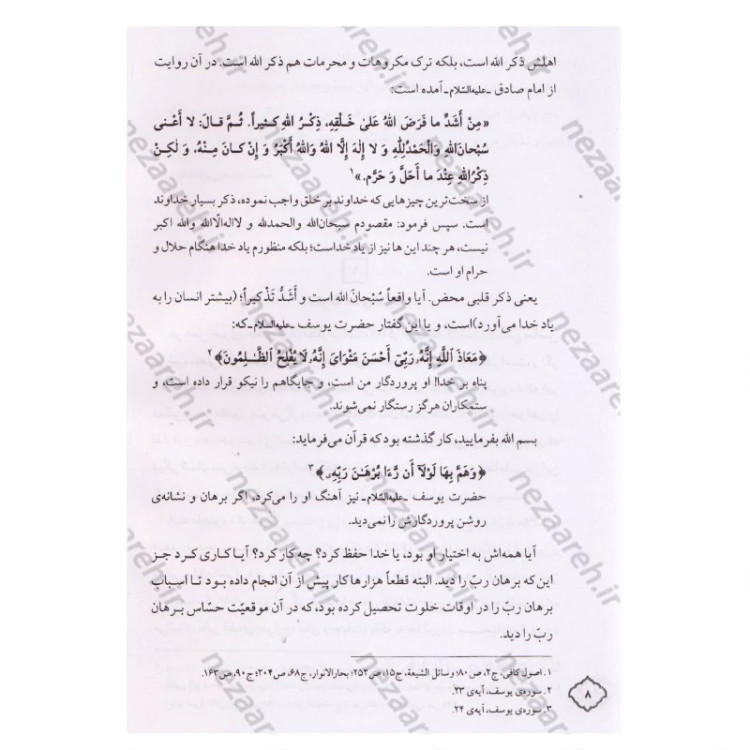 اهلش ذکر الله است، بلکه ترک مکروهات و محرمات هم ذکر الله است. در آن روایت
از امام صادق ـ علیه‌السّلام ـ آمده است:
«مِنْ أَشَدِّ ما فَرَضَ اللهُ عَلیٰ خَلْقِهِ، ذِکْرُ اللهِ کَثیراً. ثُمَّ قالَ: لا أَعْنی
سُبْحانَ‌اللهِ وَالْحَمْدُلِلّٰهِ وَ لا إِلٰهَ إِلَّا اللهُ وَاللهُ أَکْبَرُ وَ إِنْ کانَ مِنْهُ، وَ لٰکِنْ
ذِکْرُاللهِ عِنْدَ ما أَحَلَّ وَ حَرَّمَ.»۱
از سخت‌ترین چیزهایی که خداوند بر خلق واجب نموده، ذکر بسیار خداوند
است. سپس فرمود: مقصودم سبحان‌الله والحمدلله و لااله‌الّاالله والله اکبر
نیست، هر چند این ها نیز از یاد خداست؛ بلکه منظورم یاد خدا هنگام حلال و
حرام او است.
یعنی ذکر قلبی محض. آیا واقعاً سُبْحانَ الله است و أَشَدُّ تَذْکیراً؛ (بیشتر انسان را به
یاد خدا می‌آورد) است، و یا این گفتار حضرت یوسف ـ علیه‌السّلام ـ که:
﴿مَعَاذَ ٱللَّهِ إِنَّهُۥ رَبِّىٓ أَحْسَنَ مَثْوَاىَ إِنَّهُۥ لَا يُفْلِحُ ٱلظَّـٰلِمُونَ﴾۲
پناه بر خدا! او پروردگار من است، و جایگاهم را نیکو قرار داده است، و
ستمکاران هرگز رستگار نمی‌شوند.
بسم الله بفرمایید، کار گذشته بود که قرآن می‌فرماید:
﴿وَهَمَّ بِهَا لَوْلَآ أَن رَّءَا بُرْهَـٰنَ رَبِّهِۦ﴾۳
حضرت یوسف ـ علیه‌السّلام ـ نیز آهنگ او را می‌کرد، اگر برهان و نشانه‌ی
روشن پروردگارش را نمی‌دید.
آیا همه‌اش به اختیار او بود، یا خدا حفظ کرد؟ چه کار کرد؟ آیا کاری کرد جز
این‌که برهان ربّ را دید. البته قطعاً هزارها کار پیش از آن انجام داده بود تا اسباب
برهان ربّ را در اوقات خلوت تحصیل کرده بود، که در آن موقعیّت حسّاس برهان
ربّ را دید.
۱. اصول کافی، ج۲، ص۸۰؛ وسائل الشیعة، ج۱۵، ص۲۵۲؛ بحارالانوار، ج۶۸، ص۲۰۴؛ ج۹۰، ص۱۶۳.
۲. سوره‌ی یوسف، آیه‌ی ۲۳.
۳. سوره‌ی یوسف، آیه‌ی ۲۴.
۸
nezaareh.ir
nezaareh.ir
nezaareh.ir
nezaareh.ir
nezaareh.ir
nezaareh.ir
nezaareh.ir
nezaareh.ir